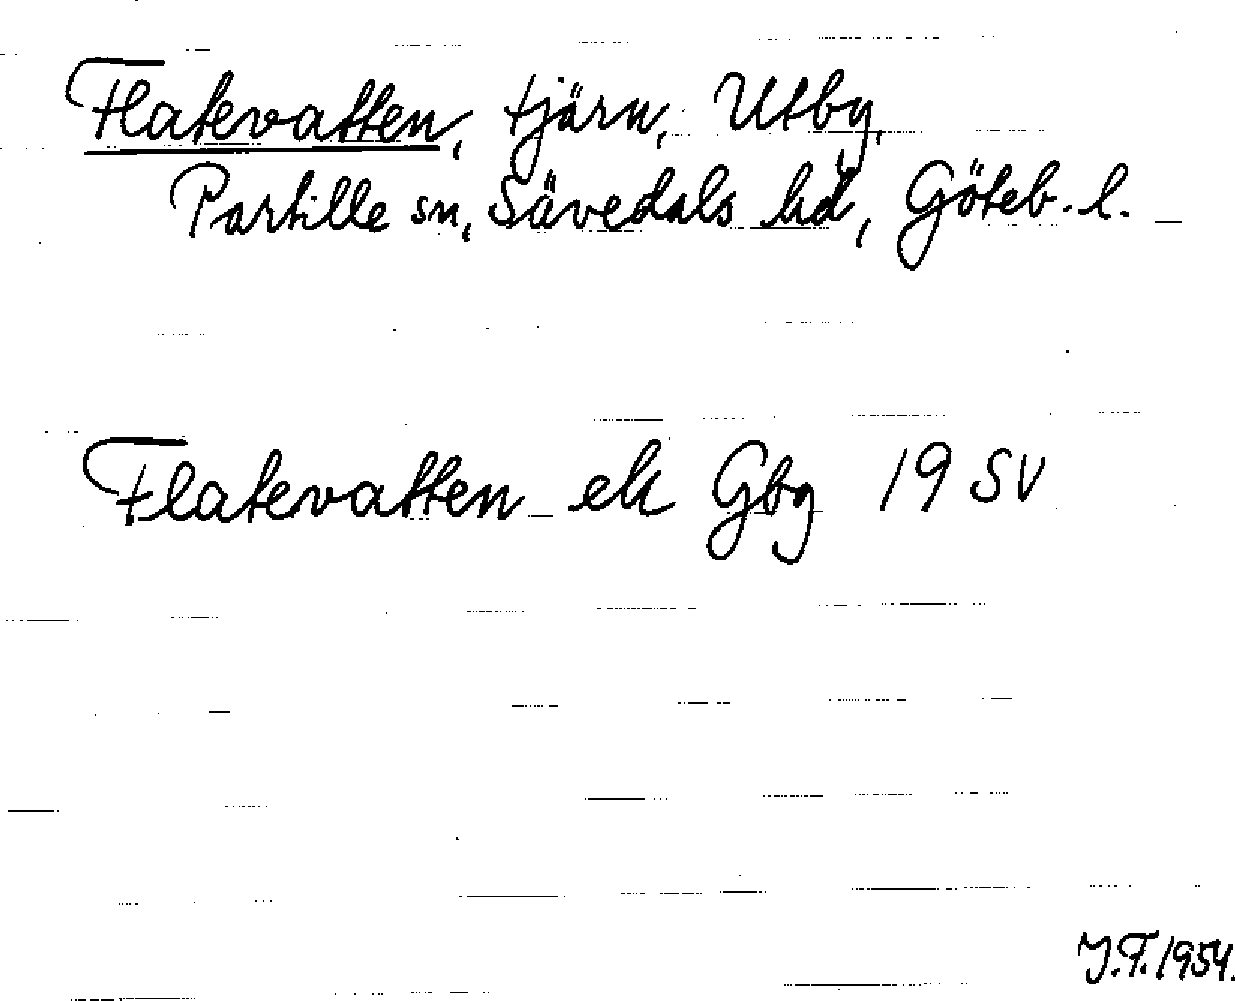 Flatevatten, tjärn, Utby,
Partille sn, Sävedals hd, Göteb. l.
Flatevatten ek Gbg 19 SV
J.F. 1954.